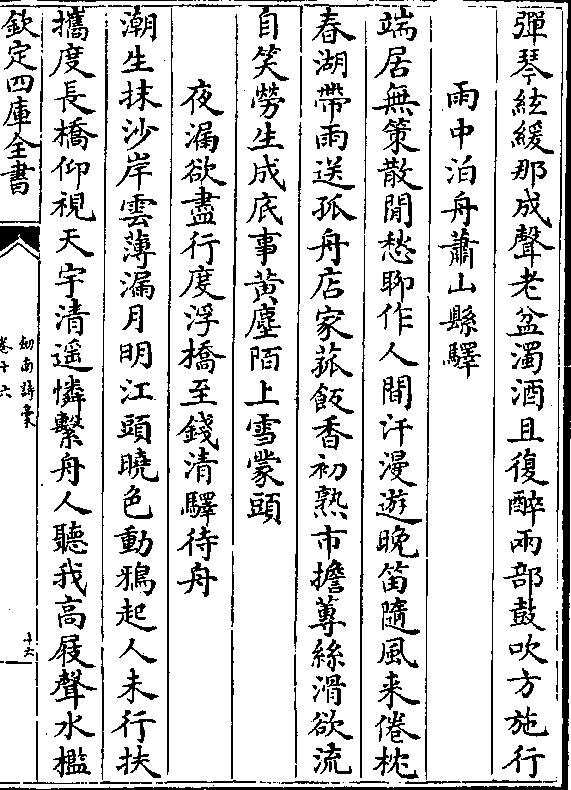 彈琴絃緩那成聲老盆濁酒且復醉兩部鼓吹方施行
雨中泊舟蕭山縣驛
端居無策散閒愁聊作人間汗漫遊晚笛隨風来倦枕
春湖帶雨送孤舟店家菰飯香初熟市擔蓴絲滑欲流
自笑勞生成底事黄塵陌上雪蒙頭
夜漏欲盡行度浮橋至錢清驛待舟
潮生抹沙岸雲薄漏月明江頭曉色動鴉起人未行扶
攜度長橋仰視天宇清遥憐繫舟人聽我高屐聲水檻
欽定四庫全書
劍南詩稾
卷十六
十六